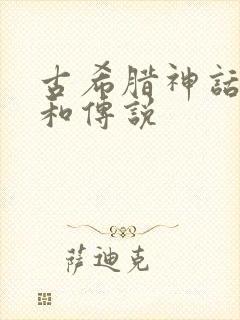 古希腊神話
和傳説
萨迪克